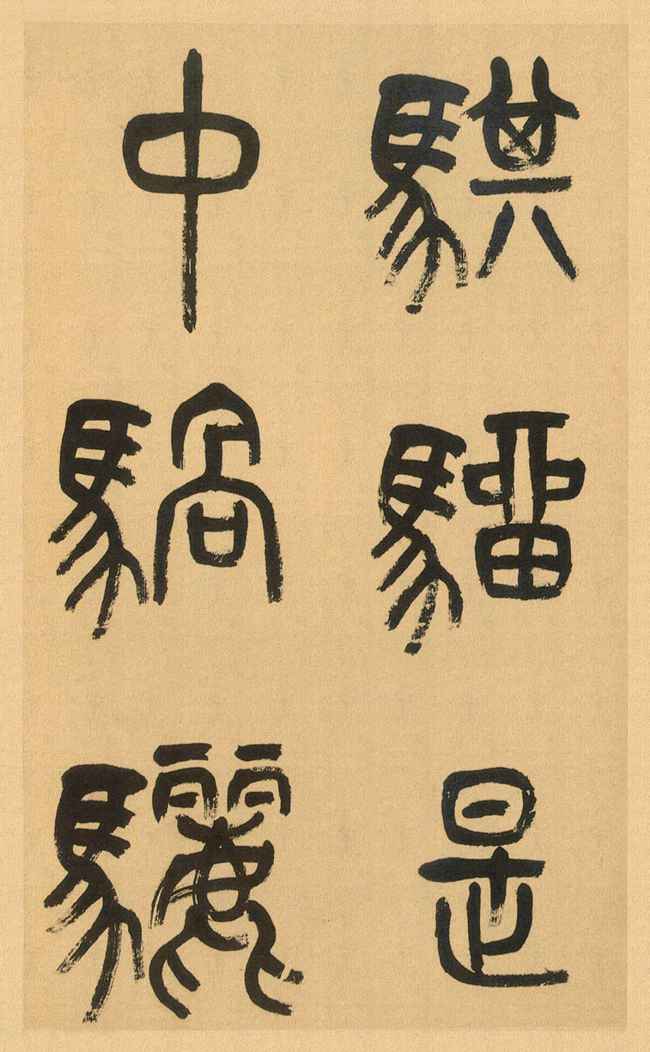 騏騮是
中騧驪